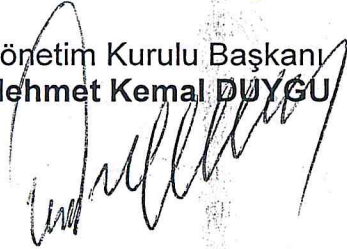 önetim Kurulu Başkanı
ehmet Kemal DUYGU